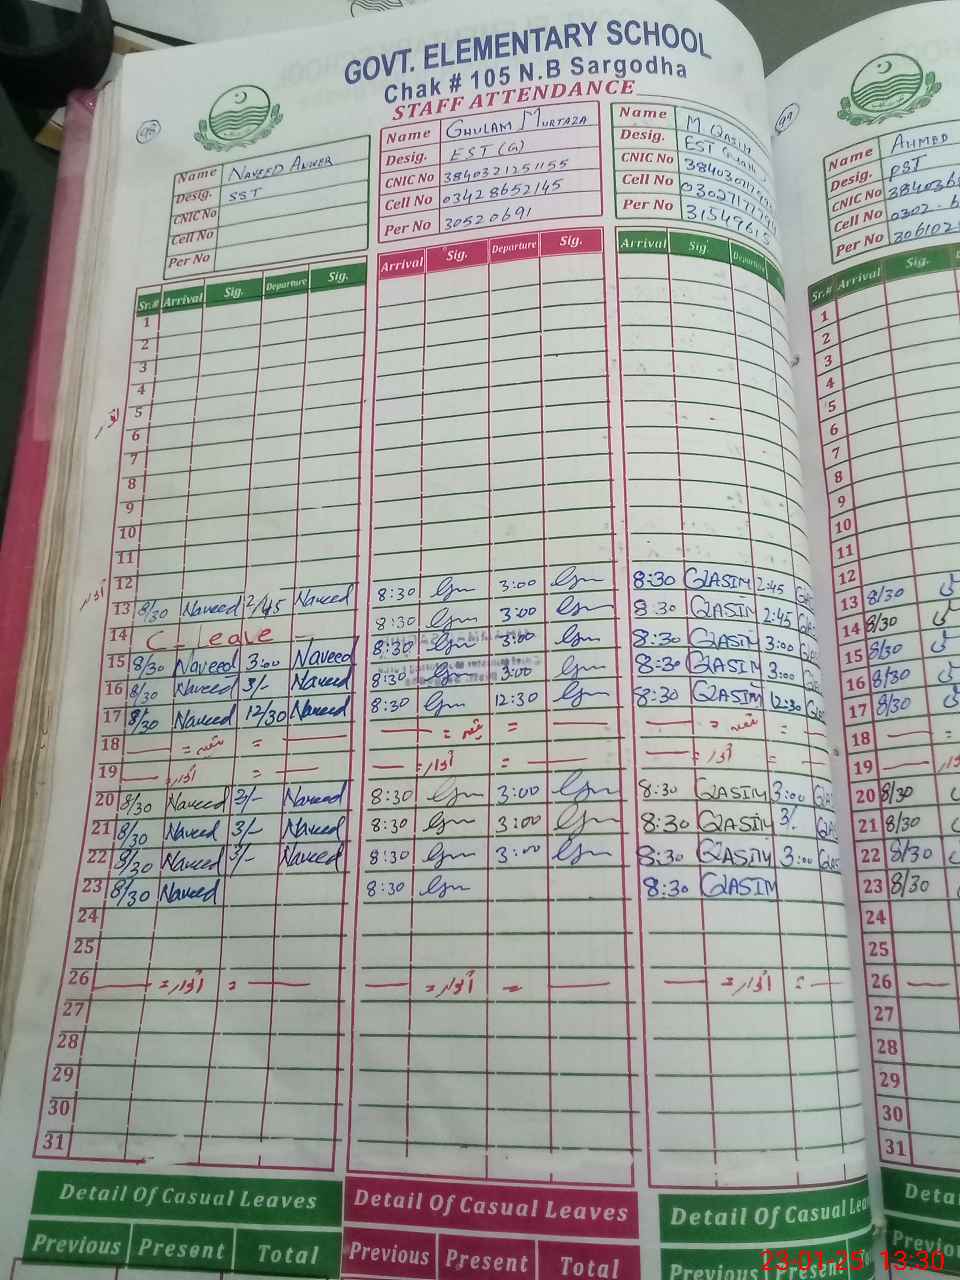 GOVT. ELEMENTARY SCHOOL
Chak # 105 N.B Sargodha
STAFF ATTENDANCE
98
Name NAVEED ANWER
Desig. SST
CNIC No
Cell No
Per No
Name GHULAM MURTAZA
Desig. EST (G)
CNIC No 3840321251155
Cell No 03428652145
Per No 30520691
Name M. QASIM
Desig. EST
CNIC No
Cell No
Per No 31549615
99
Name AHMED
Desig. PST
CNIC No
Cell No 0302-6
Per No
Sr.# Arrival Sig. Departure Sig. Arrival Sig. Departure Sig. Arrival Sig. Sr.# Arrival Sig.
1 1
2 2
3 3
4 4
5 5
اتوار
6 6
7 7
8 8
9 9
10 10
11 11
12 12
اتوار
13 8/30 Naveed 2/45 Naveed 8:30 3:00 8:30 QASIM 2:45 13 8/30
14 C = Leave = 8:30 3:00 8:30 QASIM 2:45 14 8/30
15 8/30 Naveed 3:00 Naveed 8:30 3:00 8:30 QASIM 3:00 15 8/30
16 8/30 Naveed 3/- Naveed 8:30 3:00 8:30 QASIM 3:00 16 8/30
17 8/30 Naveed 12/30 Naveed 8:30 12:30 8:30 QASIM 12:30 17 8/30
18 = ہفتہ = = ہفتہ = = ہفتہ = 18 =
19 = اتوار = = اتوار = = اتوار = 19
20 8/30 Naveed 3/- Naveed 8:30 3:00 8:30 QASIM 3:00 20 8/30
21 8/30 Naveed 3/- Naveed 8:30 3:00 8:30 QASIM 3/- 21 8/30
22 8/30 Naveed 3/- Naveed 8:30 3:00 8:30 QASIM 3:00 22 8/30
23 8/30 Naveed 8:30 8:30 QASIM 23 8/30
24 24
25 25
26 = اتوار = = اتوار = = اتوار = 26
27 27
28 28
29 29
30 30
31 31
Detail Of Casual Leaves Detail Of Casual Leaves Detail Of Casual
Previous Present Total Previous Present Total Previous Present
23-01-25 13:30